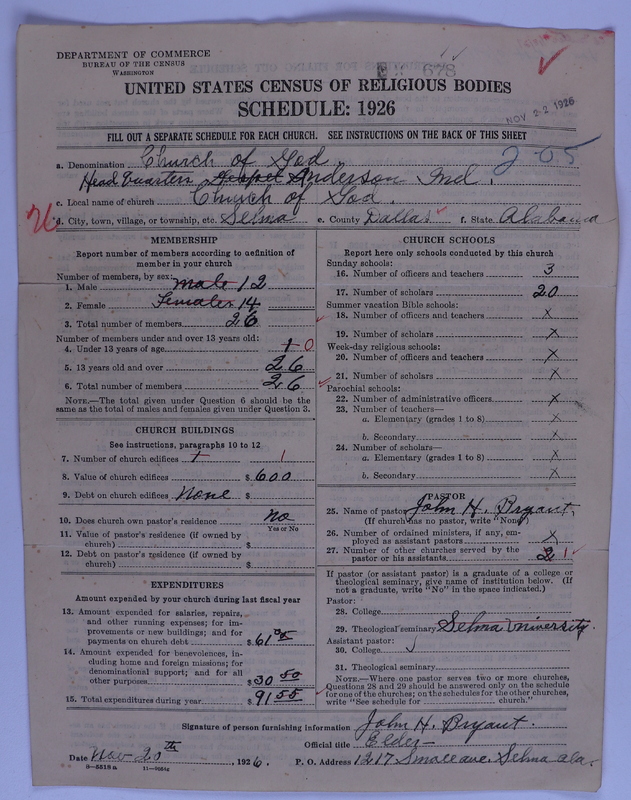 DEPARTMENT OF COMMERCE
BUREAU OF THE CENSUS
WASHINGTON
678
UNITED STATES CENSUS OF RELIGIOUS BODIES
SCHEDULE: 1926
NOV 22 1926
FILL OUT A SEPARATE SCHEDULE FOR EACH CHURCH. SEE INSTRUCTIONS ON THE BACK OF THIS SHEET
a. Denomination Church of God 205
Headquarters Gospel Anderson Ind.
c. Local name of church Church of God.
d. City, town, village, or township, etc. Selma e. County Dallas f. State Alabama
MEMBERSHIP
Report number of members according to definition of
member in your church
Number of members, by sex:
1. Male male 12
2. Female Females 14
3. Total number of members 26
Number of members under and over 13 years old:
4. Under 13 years of age 1 0
5. 13 years old and over 26
6. Total number of members 26
NOTE.—The total given under Question 6 should be
same as the total of males and females given under Question 3.
CHURCH BUILDINGS
See instructions, paragraphs 10 to 12
7. Number of church edifices 1 1
8. Value of church edifices $ 600
9. Debt on church edifices None $
10. Does church own pastor's residence No
Yes or No
11. Value of pastor's residence (if owned by
church) $
12. Debt on pastor's residence (if owned by
church) $
EXPENDITURES
Amount expended by your church during last fiscal year
13. Amount expended for salaries, repairs,
and other running expenses; for im-
provements or new buildings; and for
payments on church debt $ 61 05
14. Amount expended for benevolences, in-
cluding home and foreign missions; for
denominational support; and for all
other purposes $ 30 50
15. Total expenditures during year $ 91 55
CHURCH SCHOOLS
Report here only schools conducted by this church
Sunday schools:
16. Number of officers and teachers 3
17. Number of scholars 20
Summer vacation Bible schools:
18. Number of officers and teachers X
19. Number of scholars X
Week-day religious schools:
20. Number of officers and teachers X
21. Number of scholars X
Parochial schools:
22. Number of administrative officers X
23. Number of teachers—
a. Elementary (grades 1 to 8) X
b. Secondary X
24. Number of scholars—
a. Elementary (grades 1 to 8) X
b. Secondary X
PASTOR
25. Name of pastor John H. Bryant.
(If church has no pastor, write "None")
26. Number of ordained ministers, if any, em-
ployed as assistant pastors X
27. Number of other churches served by the
pastor or his assistants 2 1
If pastor (or assistant pastor) is a graduate of a college or
theological seminary, give name of institution below. (If
not a graduate, write "No" in the space indicated.)
Pastor:
28. College
29. Theological seminary Selma University.
Assistant pastor:
30. College
31. Theological seminary
NOTE.—Where one pastor serves two or more churches,
Questions 28 and 29 should be answered only on the schedule
for one of the churches; on the schedules for the other churches,
write "See schedule for church."
Signature of person furnishing information John H. Bryant.
Official title Elder
Date Nov 20th, 1926. P. O. Address 1217 Small ave. Selma Ala.
8—5518a 11—9084